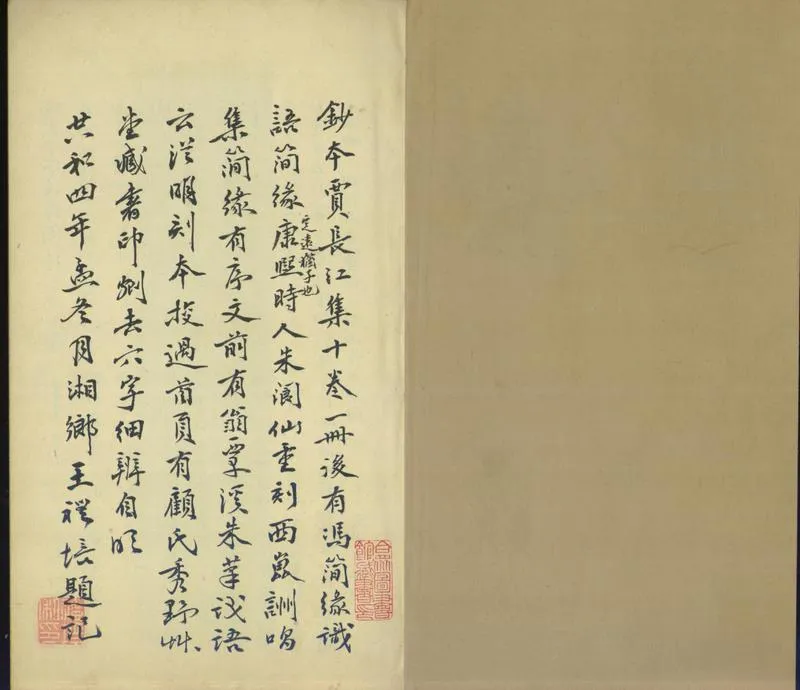 鈔本賈長江集十卷一冊後有馮簡緣識
語簡緣定遠猶子也康熙時人朱閬仙重刻西崑詶唱
集簡緣有序文前有翁覃溪朱筆語
云從明刻本挍過首頁有顧氏秀野艸
堂臧書印剜去六字細辨自明
共和四年孟冬月湘鄉王禮培題記
合眾圖書館藏書印